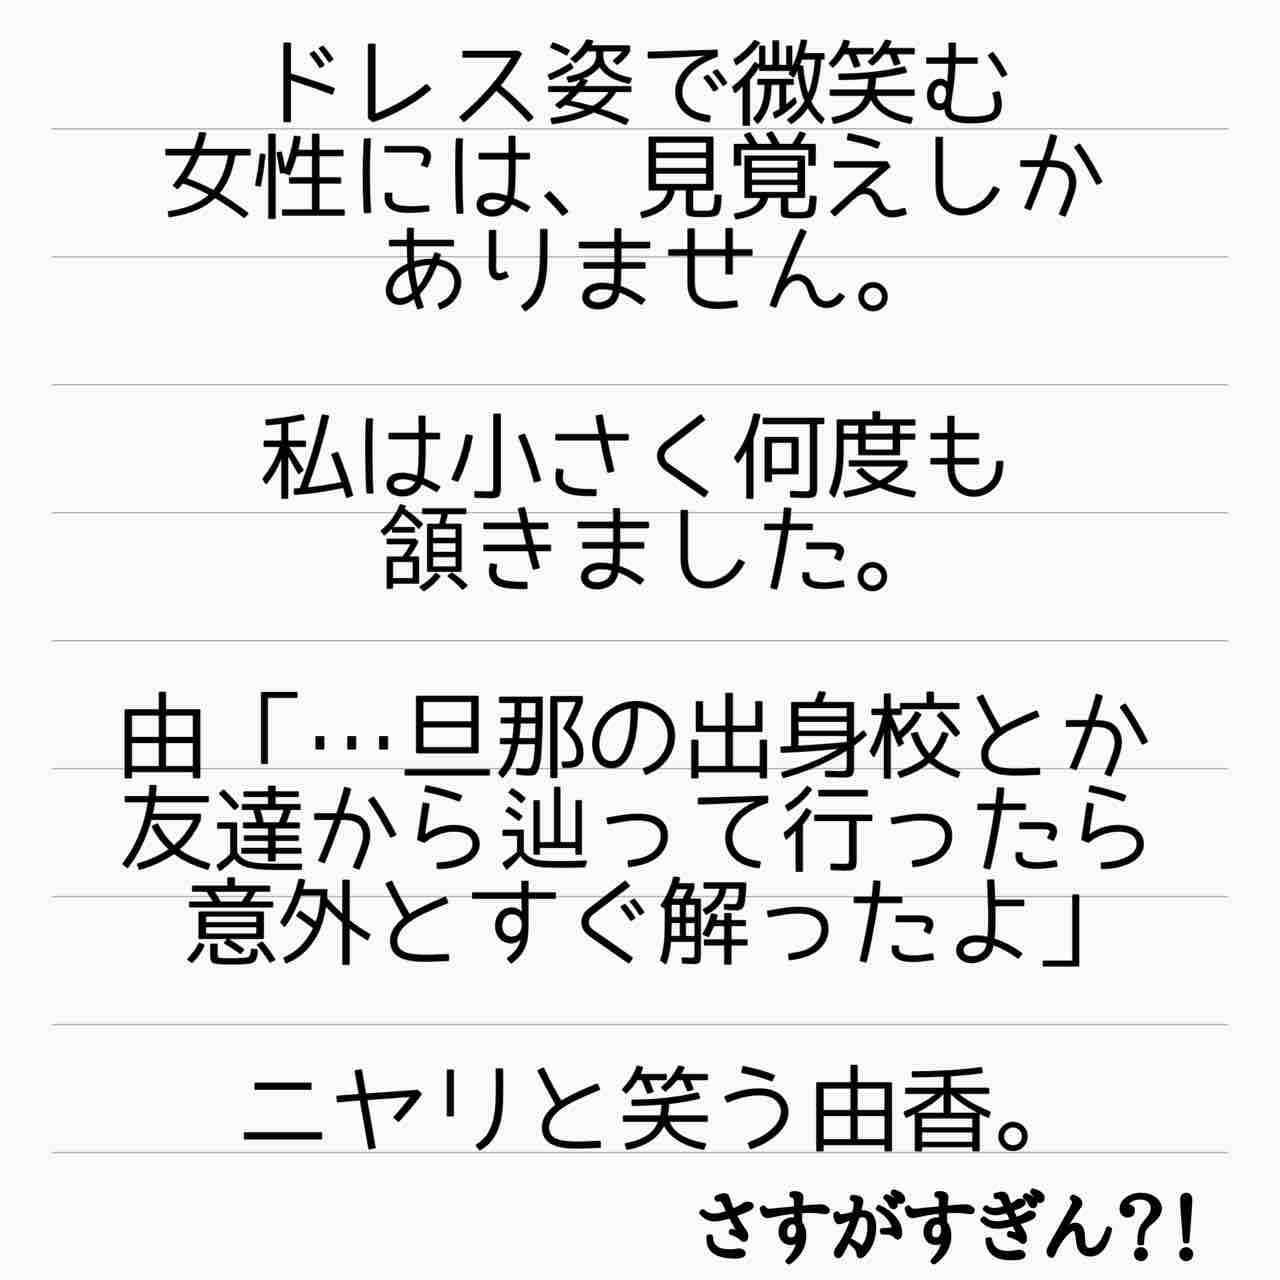 ドレス姿で微笑む
女性には、見覚えしか
ありません。
私は小さく何度も
頷きました。
由「…旦那の出身校とか
友達から辿って行ったら
意外とすぐ解ったよ」
ニヤリと笑う由香。
さすがすぎん？！